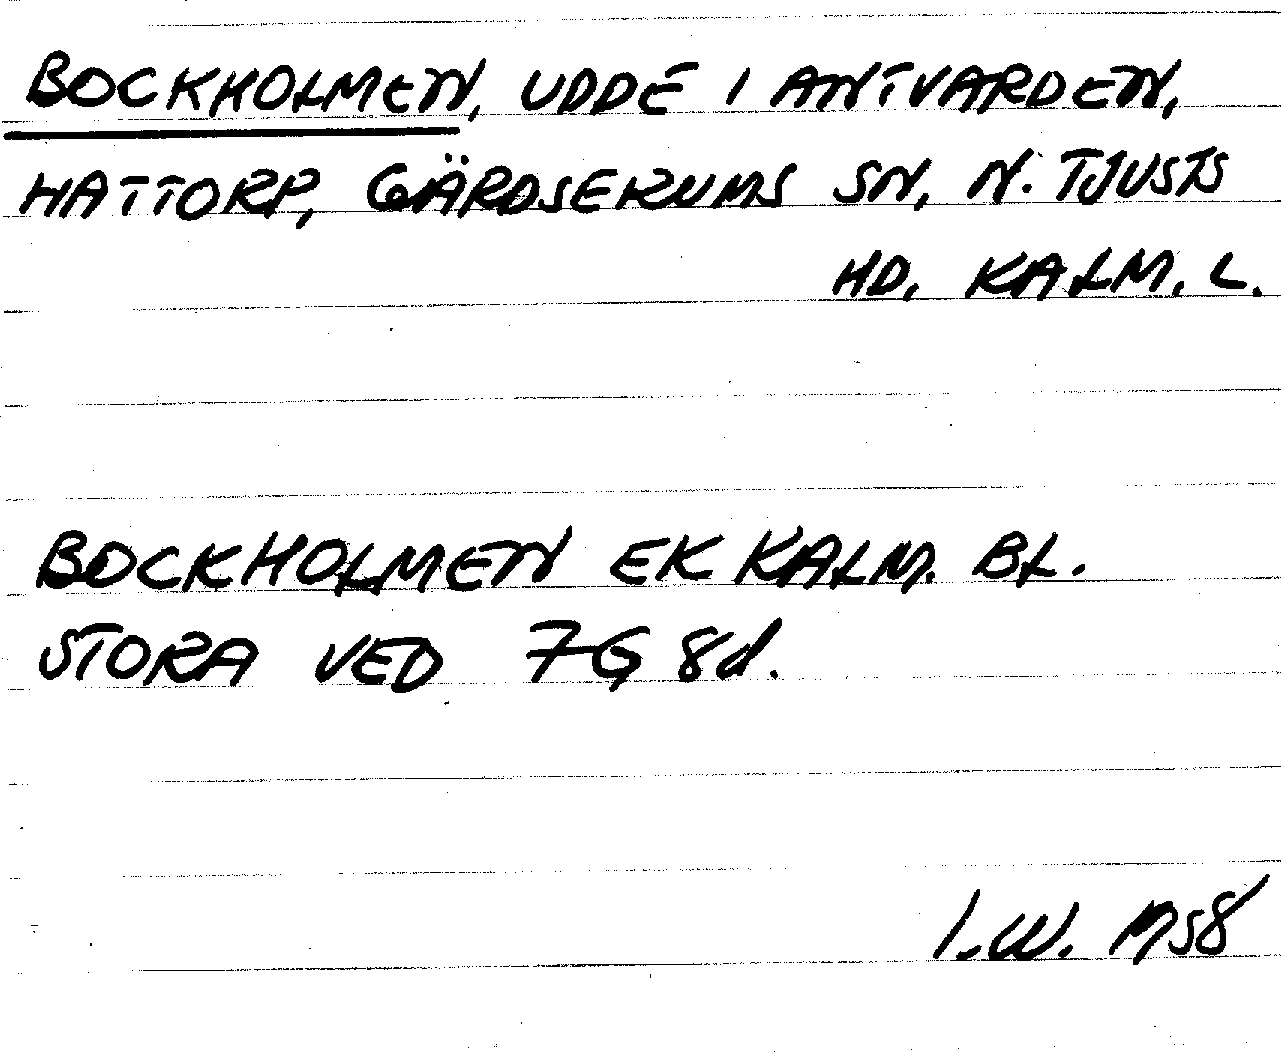 BOCKHOLMEN, UDDE I ANTVARDEN,
HATTORP, GÄRDSERUMS SN, N. TJUSTS
HD, KALM. L.
BOCKHOLMEN EK KALM. BL.
STORA VED 7G 8d.
I.W. 1958